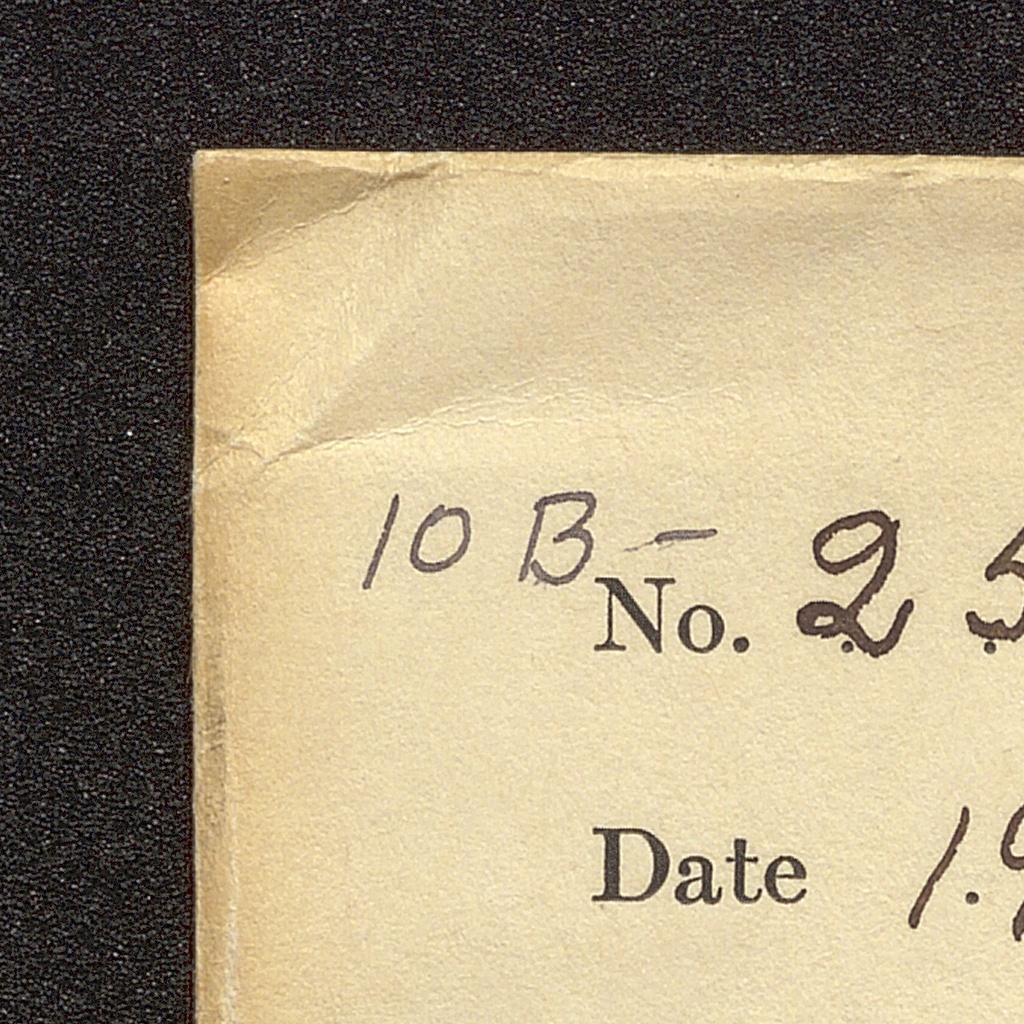 10 B-
No. 2 5
Date 1.9